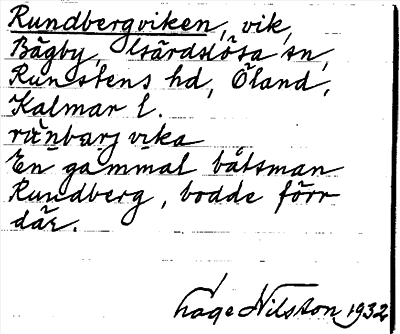 Rundbergviken, vik,
Bägby, Gärdslösa sn,
Runstens hd, Öland,
Kalmar l.
runbarj vika
En gammal båtsman
Rundberg, bodde förr
där.
Åage Nilston 1932